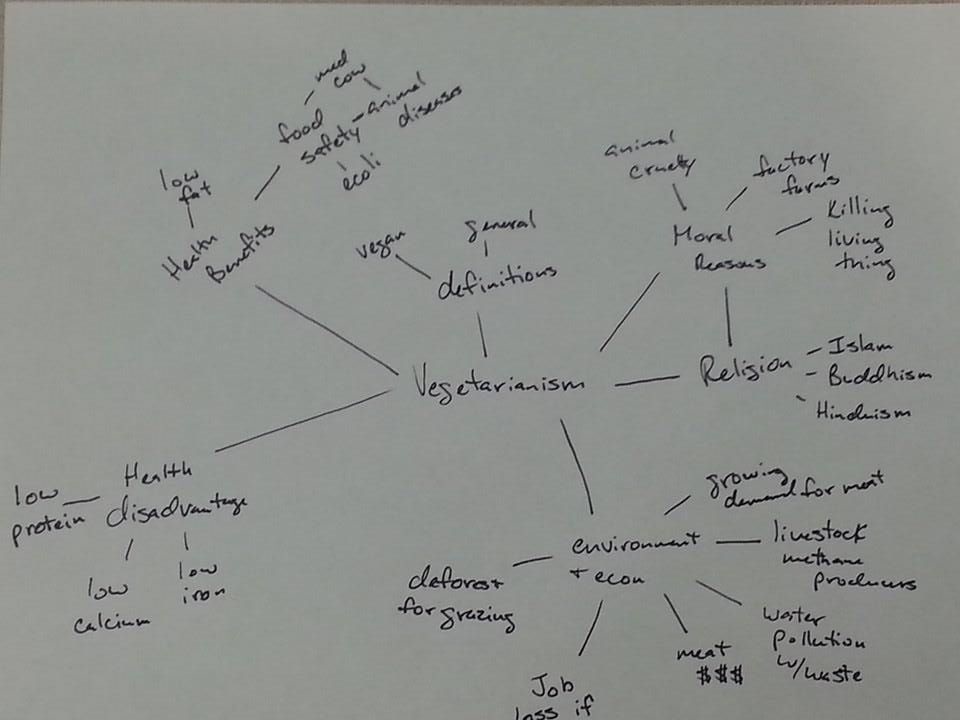 mad
cow
food
safety
animal
diseases
ecoli
low
fat
Health
Benefits
vegan
general
definitions
animal
cruelty
factory
farms
Moral
Reasons
Killing
living
thing
Vegetarianism
Religion
Islam
Buddhism
Hinduism
Health
disadvantage
low
protein
low
calcium
low
iron
environment
+ econ
growing
demand for meat
livestock
methane
producers
water
pollution
w/waste
meat
$$$
deforest
for grazing
Job
loss if